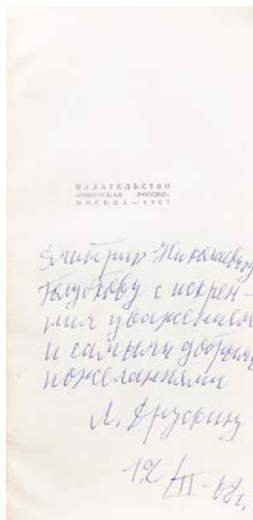 ИЗДАТЕЛЬСТВО
«СОВЕТСКАЯ РОССИЯ»
МОСКВА — 1967
Дмитрию Николаевичу
Голубкову с искрен-
ним уважением
и самыми добрыми
пожеланиями
Л. Друскин
12/III-68г.